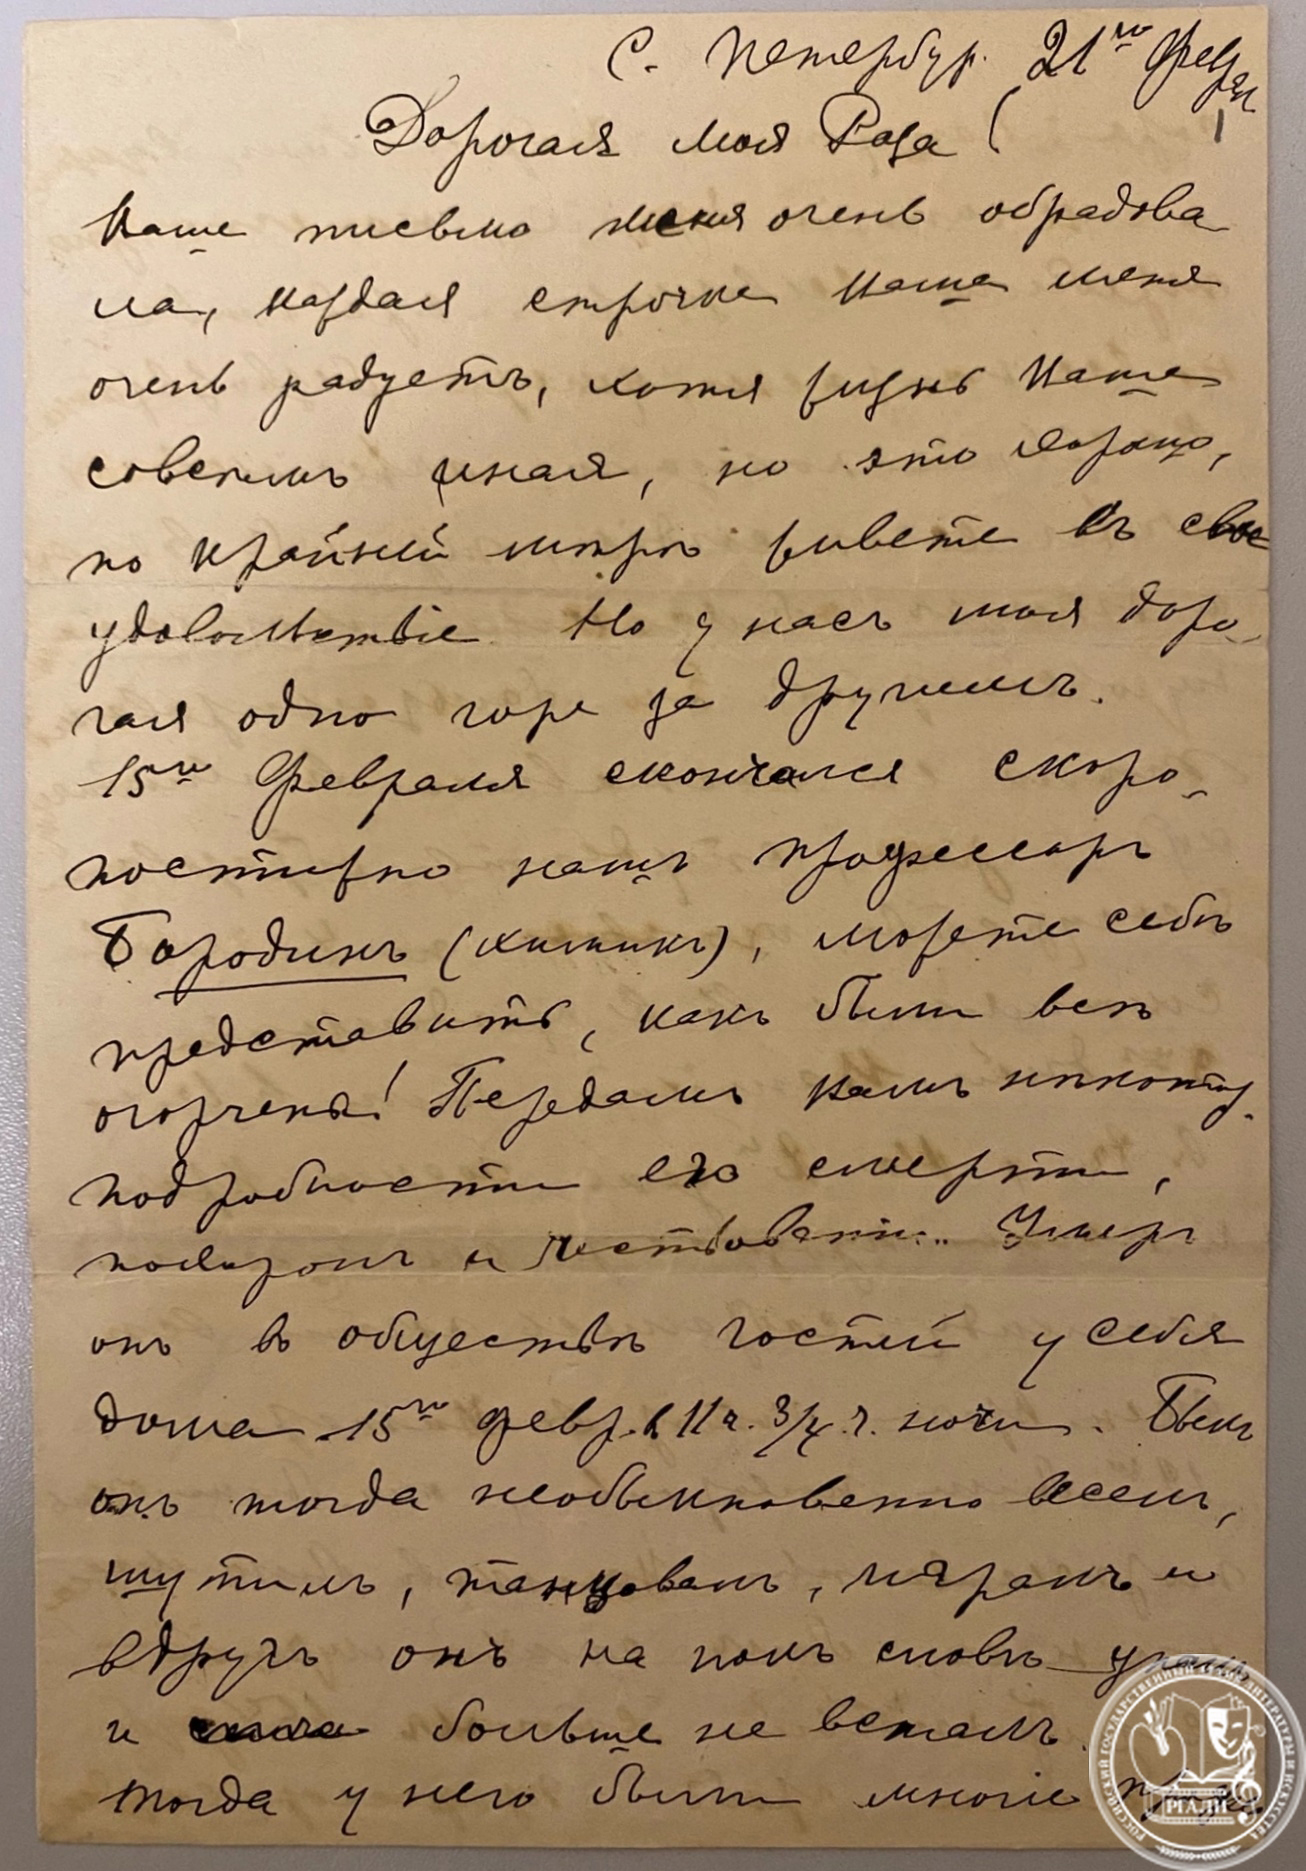 С. Петербур. 21го Февр
Дорогая моя Роза!
Ваше письмо меня очень обрадова
ла, каждая строчка Ваша меня
очень радуетъ, хотя жизнь Ваша
совсемъ иная, но это хорошо,
по крайней мѣрѣ живете въ свое
удовольствіе. Но у насъ моя доро
гая одно горе за другимъ.
15го Февраля скончался скоро-
постижно нашъ профессоръ
Бородинъ (химикъ), можете себѣ
представить, какъ были всѣ
огорчены! Передамъ Вамъ нѣкотор.
подробности его смерти,
похоронъ и чествованія. Умеръ
онъ въ обществѣ гостей у себя
дома 15го февр. в 11 ч. 3/4 ч. ночи. Былъ
онъ тогда необыкновенно веселъ,
шутилъ, танцовалъ, игралъ и
вдругъ онъ на полъ словъ упалъ
и больше не всталъ.
Тогда у него были многіе
РОССИЙСКИЙ ГОСУДАРСТВЕННЫЙ АРХИВ ЛИТЕРАТУРЫ И ИСКУССТВА
РГАЛИ